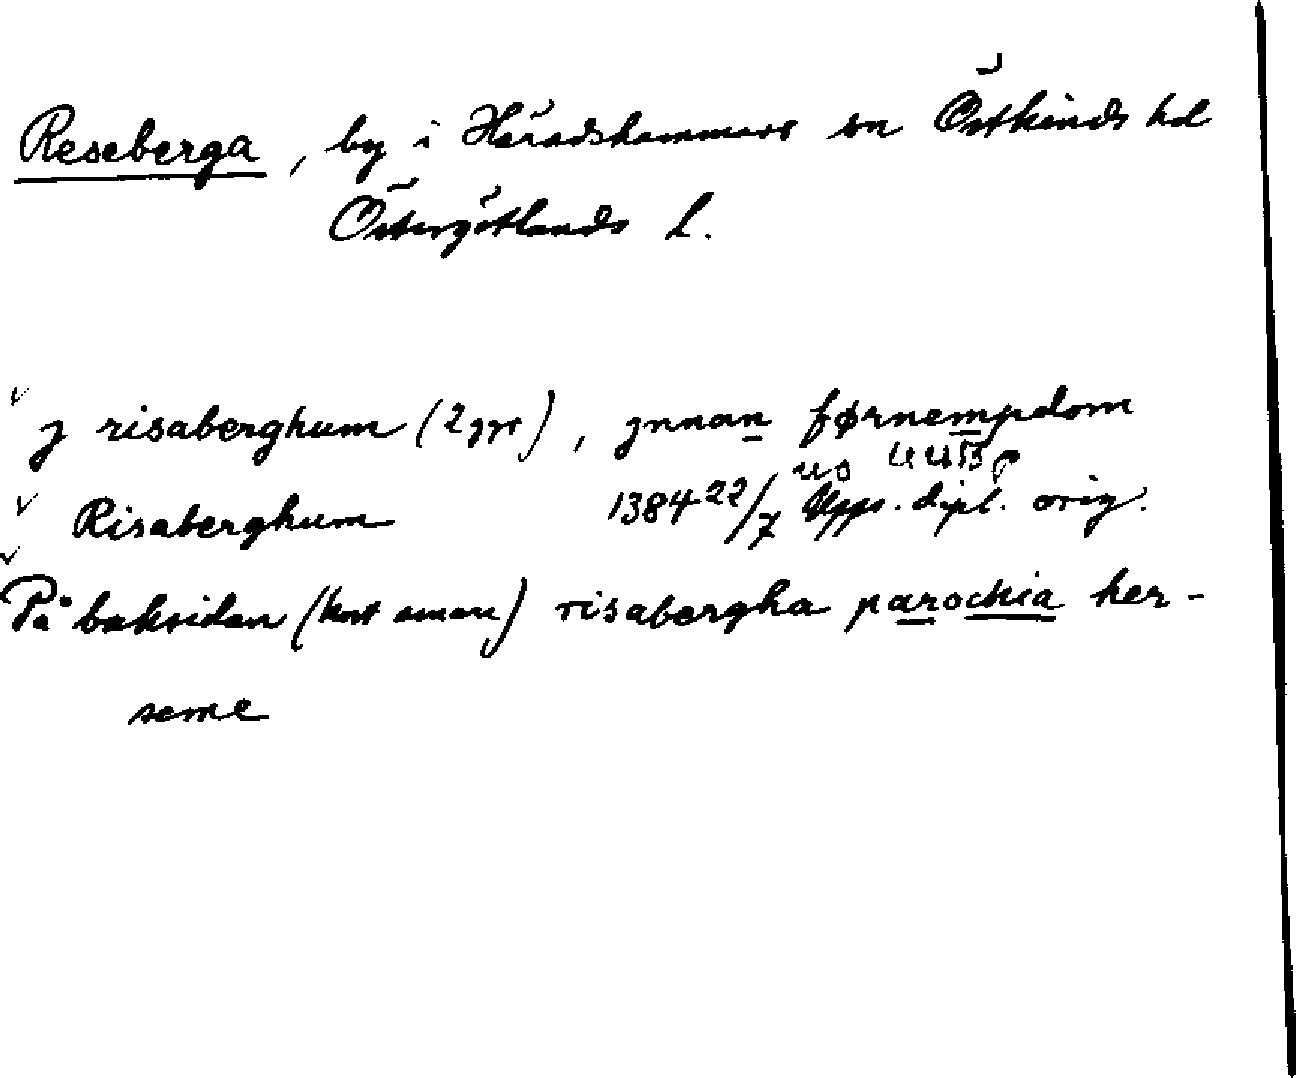 Reseberga, by i Häradshammars sn Östkinds hd
Östergötlands l.
j risaberghum (2 ggr), jnnan førnempdom
us UUB p
Risaberghum 1384 22/7 Upps. dipl. orig.
På baksidan (hort annan) risabergha parochia her-
seme